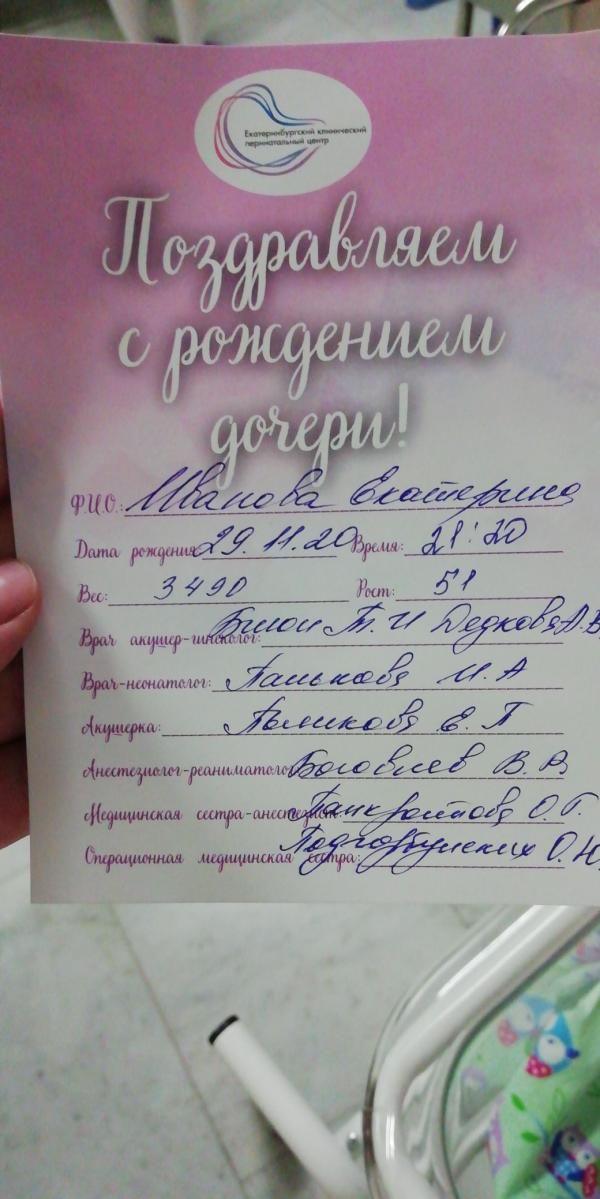 Екатеринбургский клинический
перинатальный центр
Поздравляем
с рождением
дочери!
Ф.И.О.: Иванова Екатерина
Дата рождения 29.11.20 Время: 21:20
Вес: 3490 Рост: 51
Врач акушер-гинеколог: Т.И Дедкова А.В
Врач-неонатолог: Панькова И.А
Акушерка: Поликова Е.П
Анестезиолог-реаниматолог В.В
Медицинская сестра-анестезист: Панкратова О.Г.
Операционная медицинская сестра: О.Н